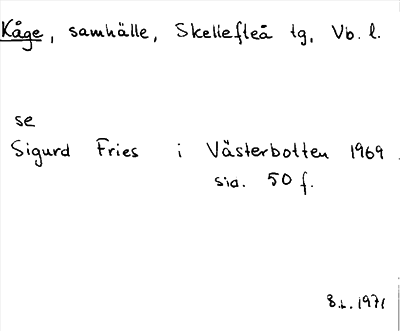 Kåge, samhälle, Skellefteå tg, Vb. l.
se
Sigurd Fries i Västerbotten 1969
sid. 50 f.
8.1.1971